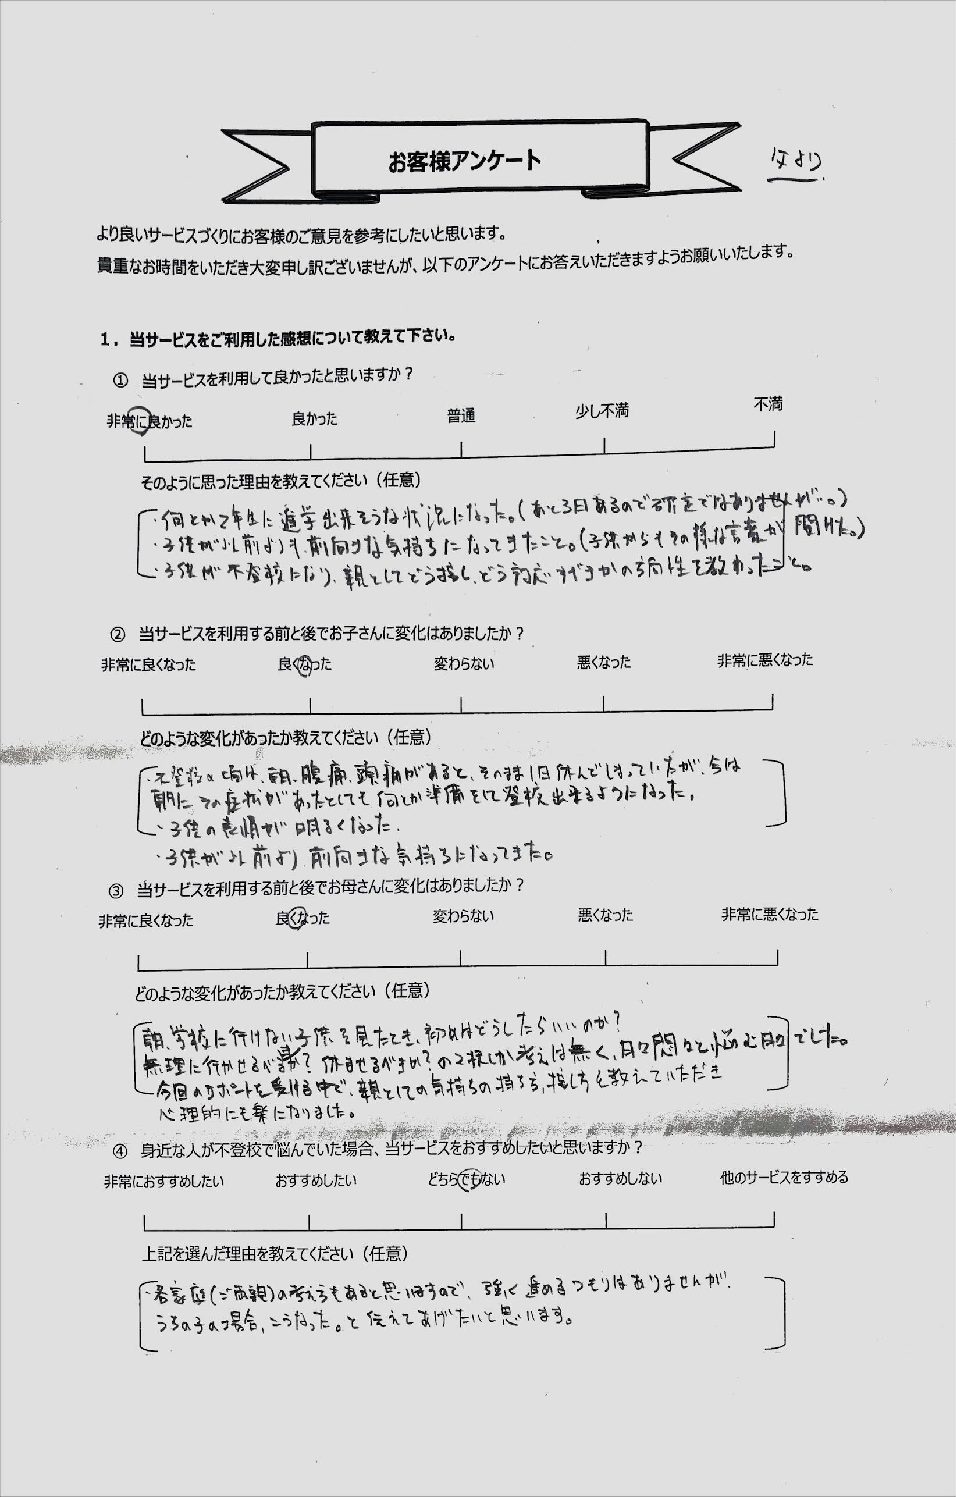 お客様アンケート
より
より良いサービスづくりにお客様のご意見を参考にしたいと思います。
貴重なお時間をいただき大変申し訳ございませんが、以下のアンケートにお答えいただきますようお願いいたします。
1．当サービスをご利用した感想について教えて下さい。
① 当サービスを利用して良かったと思いますか？
非常に良かった 良かった 普通 少し不満 不満
そのように思った理由を教えてください（任意）
・何とか2年生に進学出来そうな状況になった。(あと3日あるので確定ではありませんが…。)
・子供が以前よりも、前向きな気持ちになってきたこと。(子供からもその様な言葉が聞けた。)
・子供が不登校になり、親としてどう接し、どう対応すべきかの方向性を教わったこと。
② 当サービスを利用する前と後でお子さんに変化はありましたか？
非常に良くなった 良くなった 変わらない 悪くなった 非常に悪くなった
どのような変化があったか教えてください（任意）
・不登校の頃は、朝、腹痛、頭痛があると、そのまま1日休んでしまっていたが、今は
朝にその症状があったとしても何とか準備をして登校出来るようになった。
・子供の表情が明るくなった。
・子供が以前より前向きな気持ちになってきた。
③ 当サービスを利用する前と後でお母さんに変化はありましたか？
非常に良くなった 良くなった 変わらない 悪くなった 非常に悪くなった
どのような変化があったか教えてください（任意）
朝、学校に行けない子供を見たとき、初めはどうしたらいいのか？
無理に行かせるべきか？休ませるべきか？の2択しか考えは無く、日々悶々と悩む日々でした。
今回のサポートを受ける中で、親としての気持ちの持ち方、接し方を教えていただき
心理的にも楽になりました。
④ 身近な人が不登校で悩んでいた場合、当サービスをおすすめしたいと思いますか？
非常におすすめしたい おすすめしたい どちらでもない おすすめしない 他のサービスをすすめる
上記を選んだ理由を教えてください（任意）
・各家庭(ご両親)の考え方もあると思いますので、強く進めるつもりはありませんが、
うちの子の場合、こうなった。と伝えてあげたいと思います。